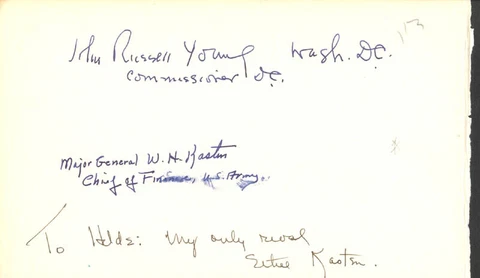 John Russell Young Wash. D.C.
Commissioner D.C.
Major General W. H. Kasten
Chief of Finance, U.S. Army.
To Hilda: My only rival
Kasten.